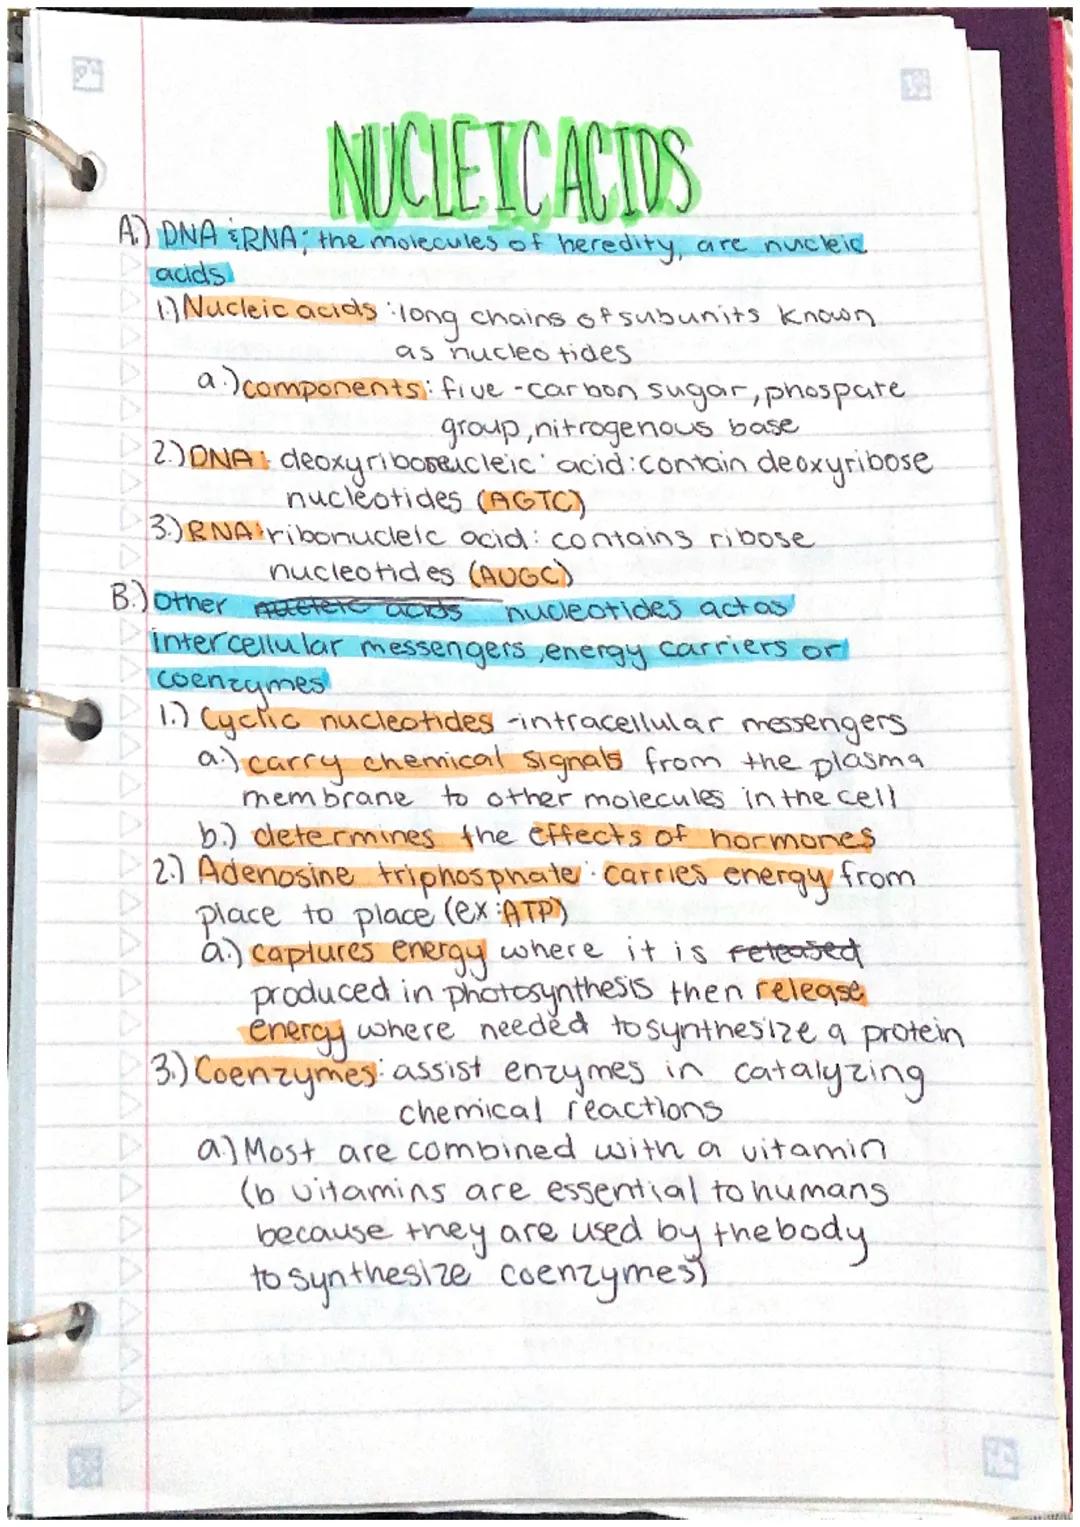 NUCLEIC ACIDS
A.) DNA & RNA; the molecules of heredity, are nucleic
acids
1.) Nucleic acids: long chains of subunits known
as nucleotides
a.) components: five-carbon sugar, phospate
group, nitrogenous base
2.) DNA: deoxyriboseucleic acid: contain deoxyribose
nucleotides (AGTC)
3.) RNA: ribonucleic acid: contains ribose
nucleotides (AUGC)
B.) other nucleic acids nucleotides act as
intercellular messengers, energy carriers or
coenzymes
1.) Cyclic nucleotides - intracellular messengers
a.) carry chemical signals from the plasma
membrane to other molecules in the cell
b.) determines the effects of hormones
2.) Adenosine triphosphate: carries energy from
place to place (ex: ATP)
a.) captures energy where it is released
produced in photosynthesis then release
energy where needed to synthesize a protein
3.) Coenzymes: assist enzymes in catalyzing
chemical reactions
a.) Most are combined with a vitamin
(b vitamins are essential to humans
because they are used by the body
to synthesize coenzymes)